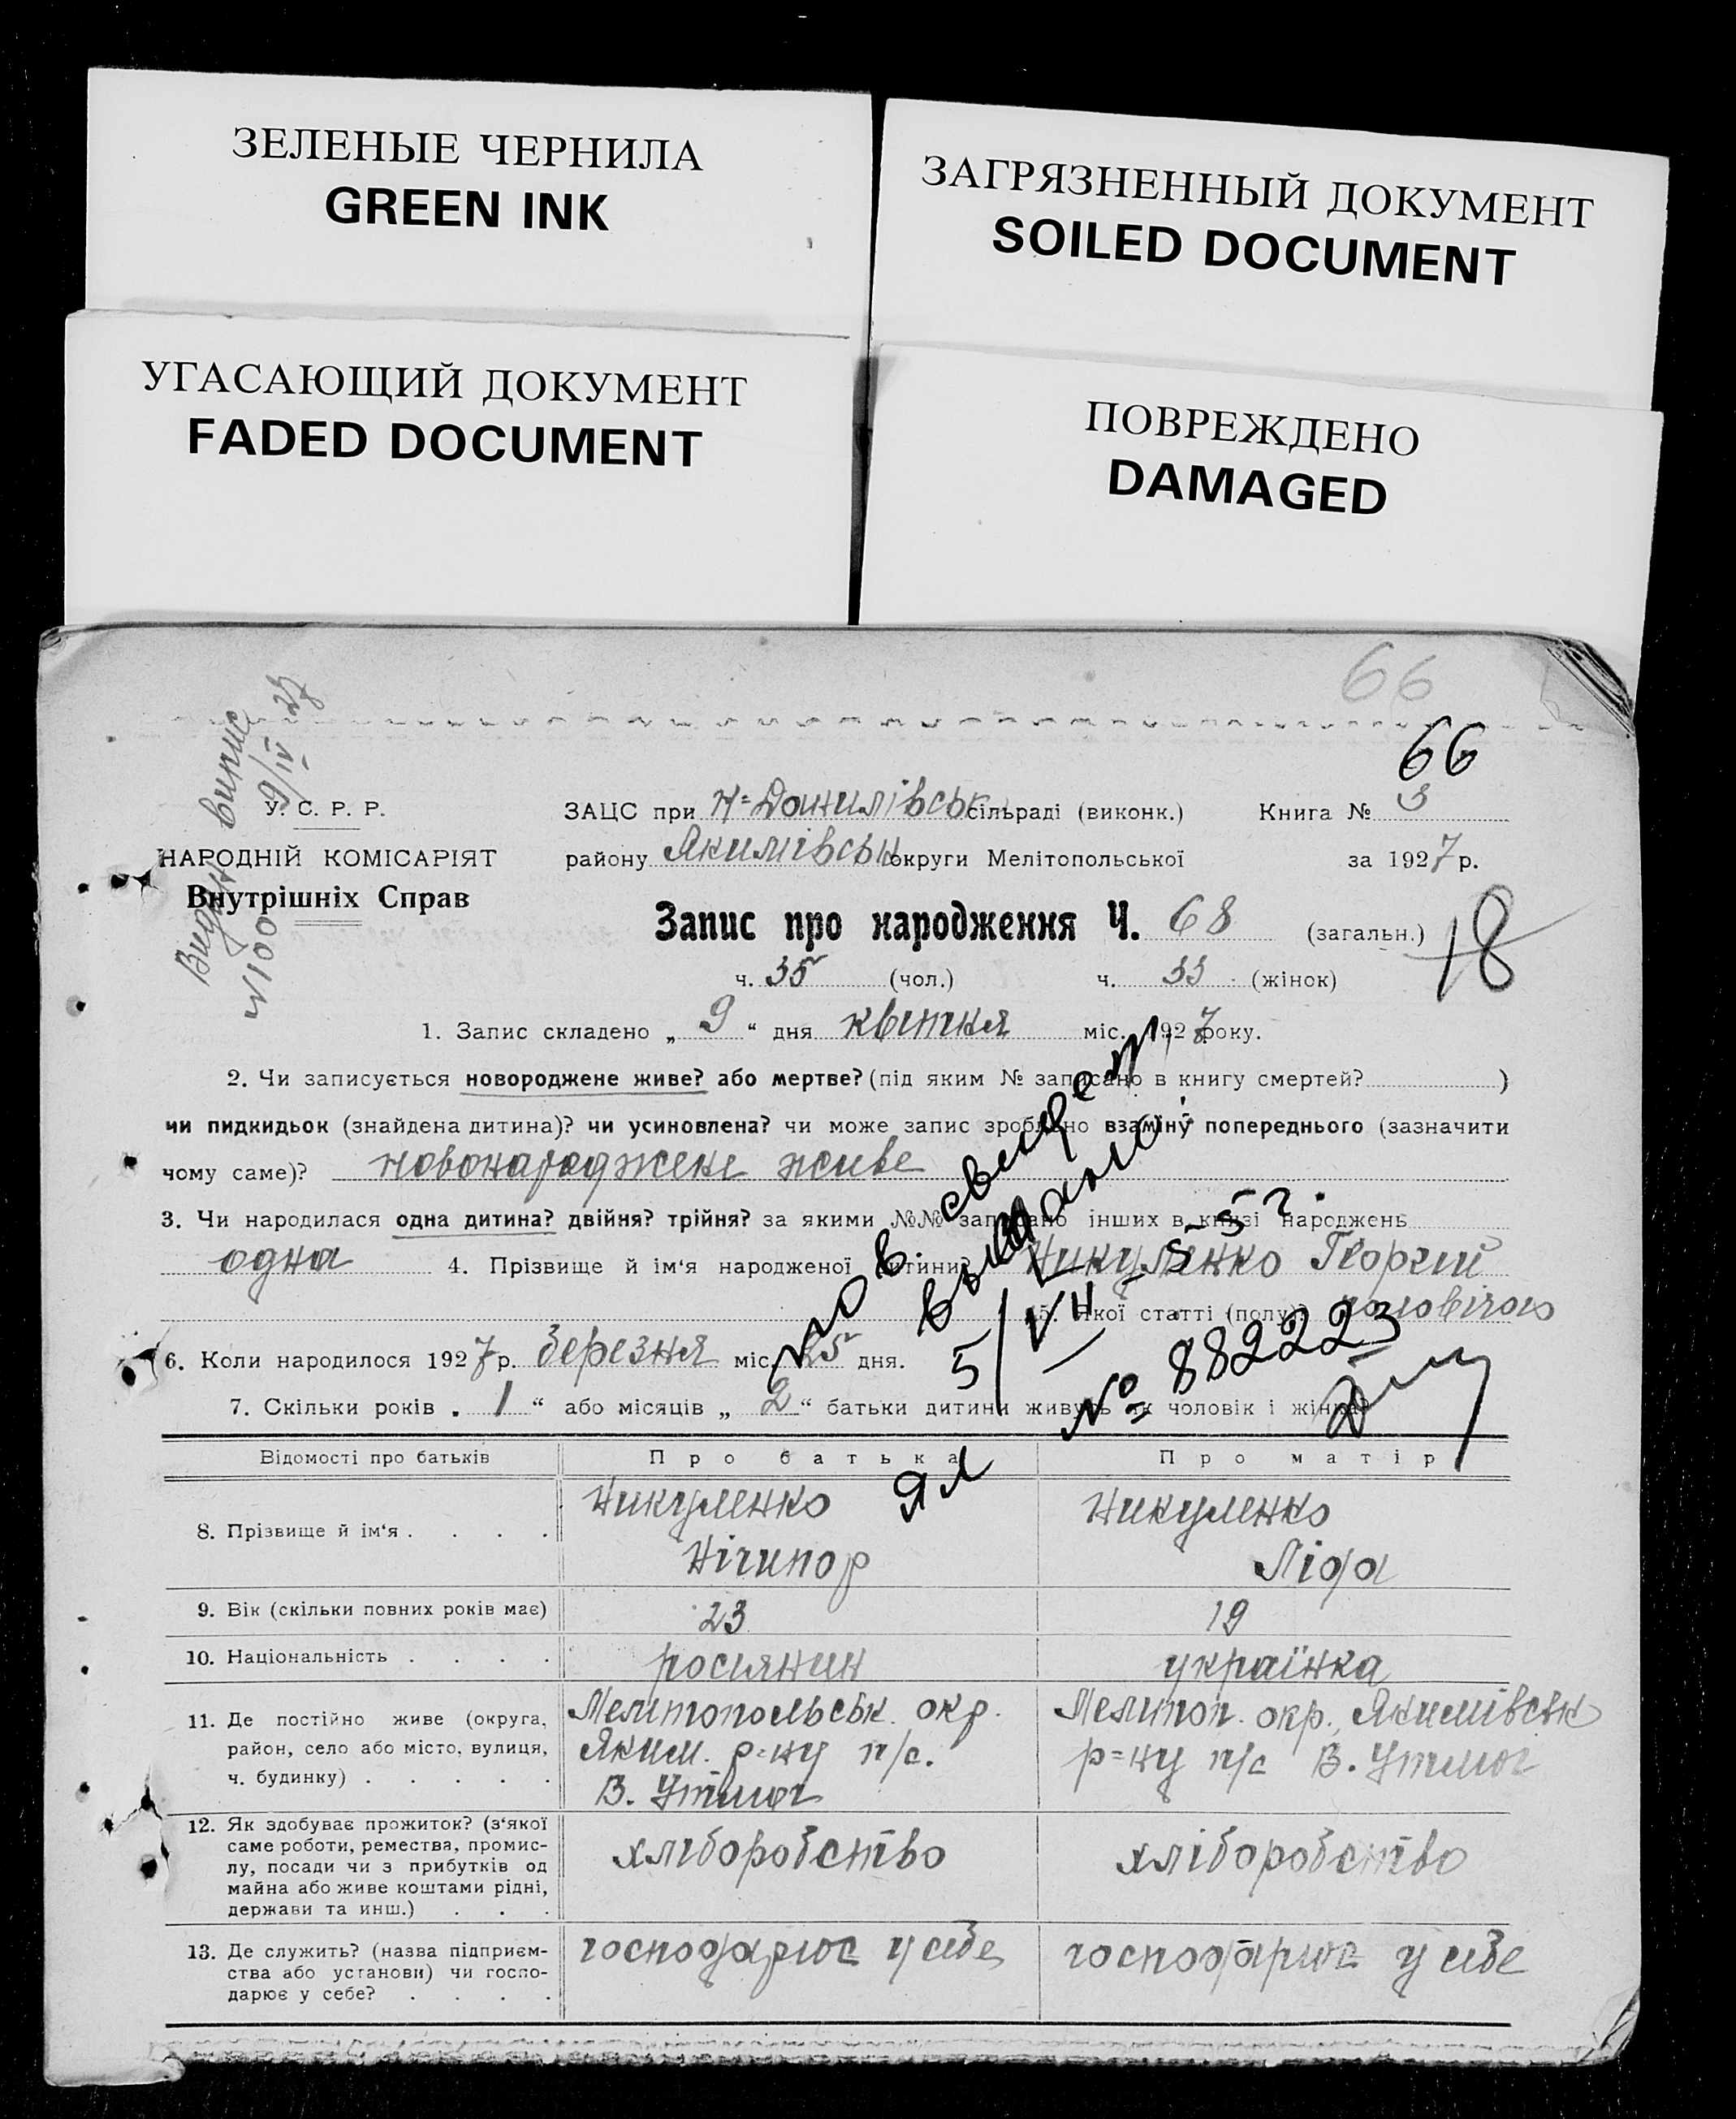 ЗЕЛЕНЫЕ ЧЕРНИЛА
GREEN INK
ЗАГРЯЗНЕННЫЙ ДОКУМЕНТ
SOILED DOCUMENT
УГАСАЮЩИЙ ДОКУМЕНТ
FADED DOCUMENT
ПОВРЕЖДЕНО
DAMAGED
66
66
Видан випис
9/IV 27
№100
У. С. Р. Р.
НАРОДНІЙ КОМІСАРІЯТ
Внутрішніх Справ
ЗАЦС при Н=Данилівськ сільраді (виконк.) Книга № 3
району Якимівськ округи Мелітопольської за 1927 р.
Запис про народження Ч. 68 (загальн.) 18
ч. 35 (чол.) ч. 33 (жінок)
1. Запис складено „ 9 “ дня квітня міс. 1927 року.
2. Чи записується новороджене живе? або мертве? (під яким № записано в книгу смертей? )
чи пидкидьок (знайдена дитина)? чи усиновлена? чи може запис зроблено взаміну попереднього (зазначити
чому саме)? новонароджене живе
3. Чи народилася одна дитина? двійня? трійня? за якими №№ записано інших в книзі народжень
одна 4. Прізвище й ім‘я народженої дитини Никуленко Георгий
5. Якої статті (полу)? чоловічого
6. Коли народилося 1927 р. березня міс. 25 дня.
7. Скільки років „ 1 “ або місяців „ 2 “ батьки дитини живуть як чоловік і жінка?
повт. свидет.
выдано
5/VII - 55 г.
№ 882223
ЯЛ
Відомості про батьків Про батька Про матір
8. Прізвище й ім‘я . . . . Никуленко Нічипор Никуленко Ліда
9. Вік (скільки повних років має) 23 19
10. Національність . . . . росиянин українка
11. Де постійно живе (округа, район, село або місто, вулиця, ч. будинку) . . . . .
Мелитопольськ. окр.
Яким. р=ну п/с.
В. Утлюг
Мелитоп. окр., Якимівськ
р=ну п/с В. Утлюг
12. Як здобуває прожиток? (з‘якої
саме роботи, ремества, промис-
лу, посади чи з прибутків од
майна або живе коштами рідні,
держави та инш.) . . .
хліборобство хліборобство
13. Де служить? (назва підприєм-
ства або установи) чи госпо-
дарює у себе? . . . .
господарює у себе господарює у себе